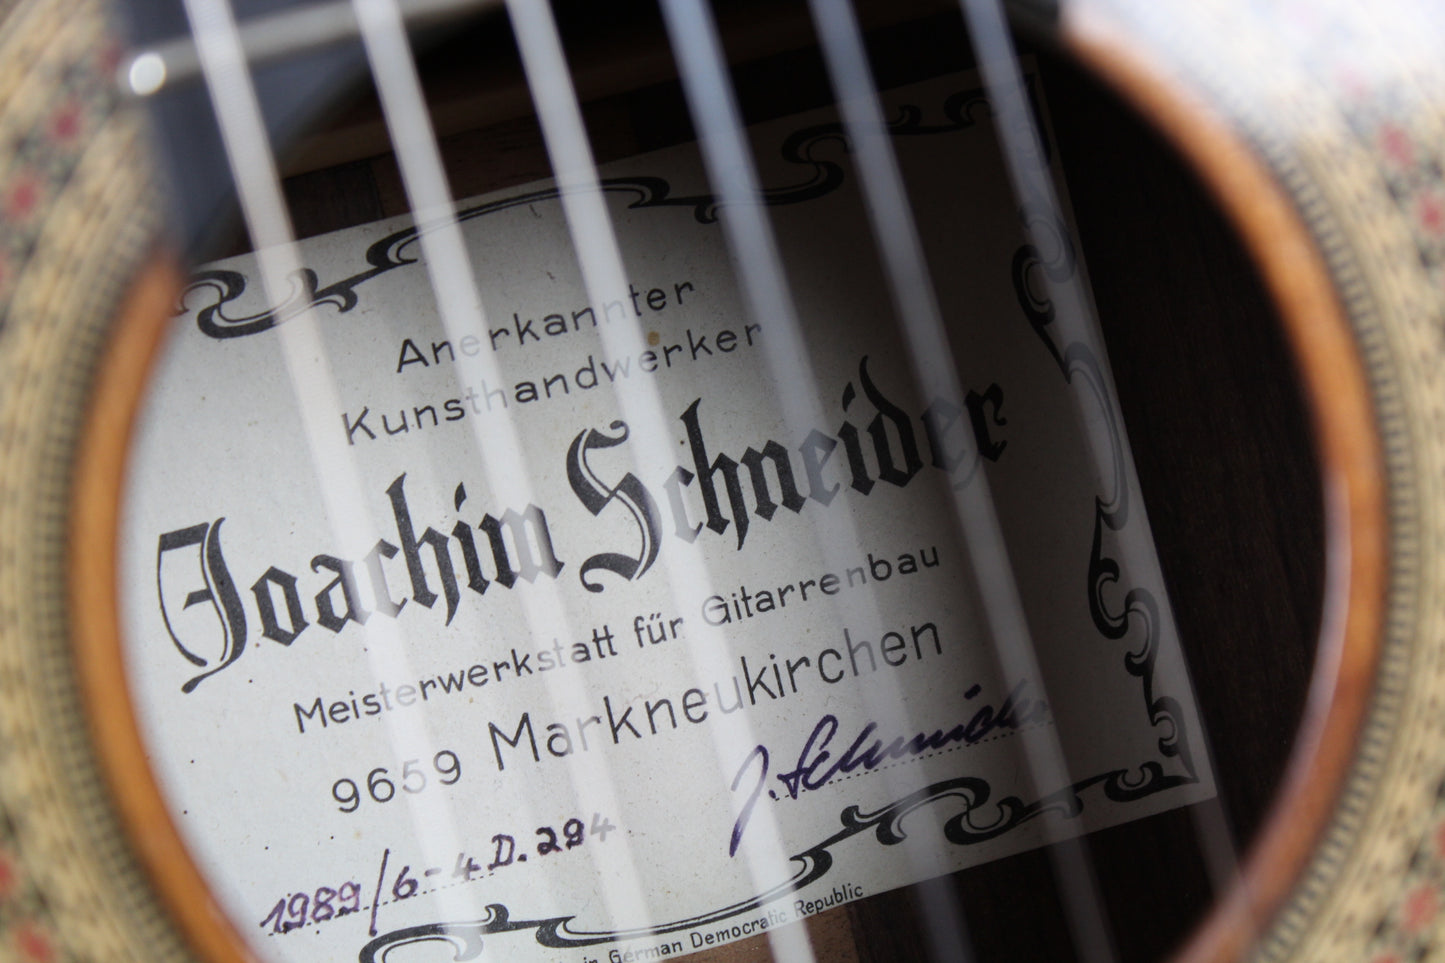 Anerkannter
Kunsthandwerker
Joachim Schneider
Meisterwerkstatt für Gitarrenbau
9659 Markneukirchen
J. Schneider
1989/6-4 D. 294
in German Democratic Republic